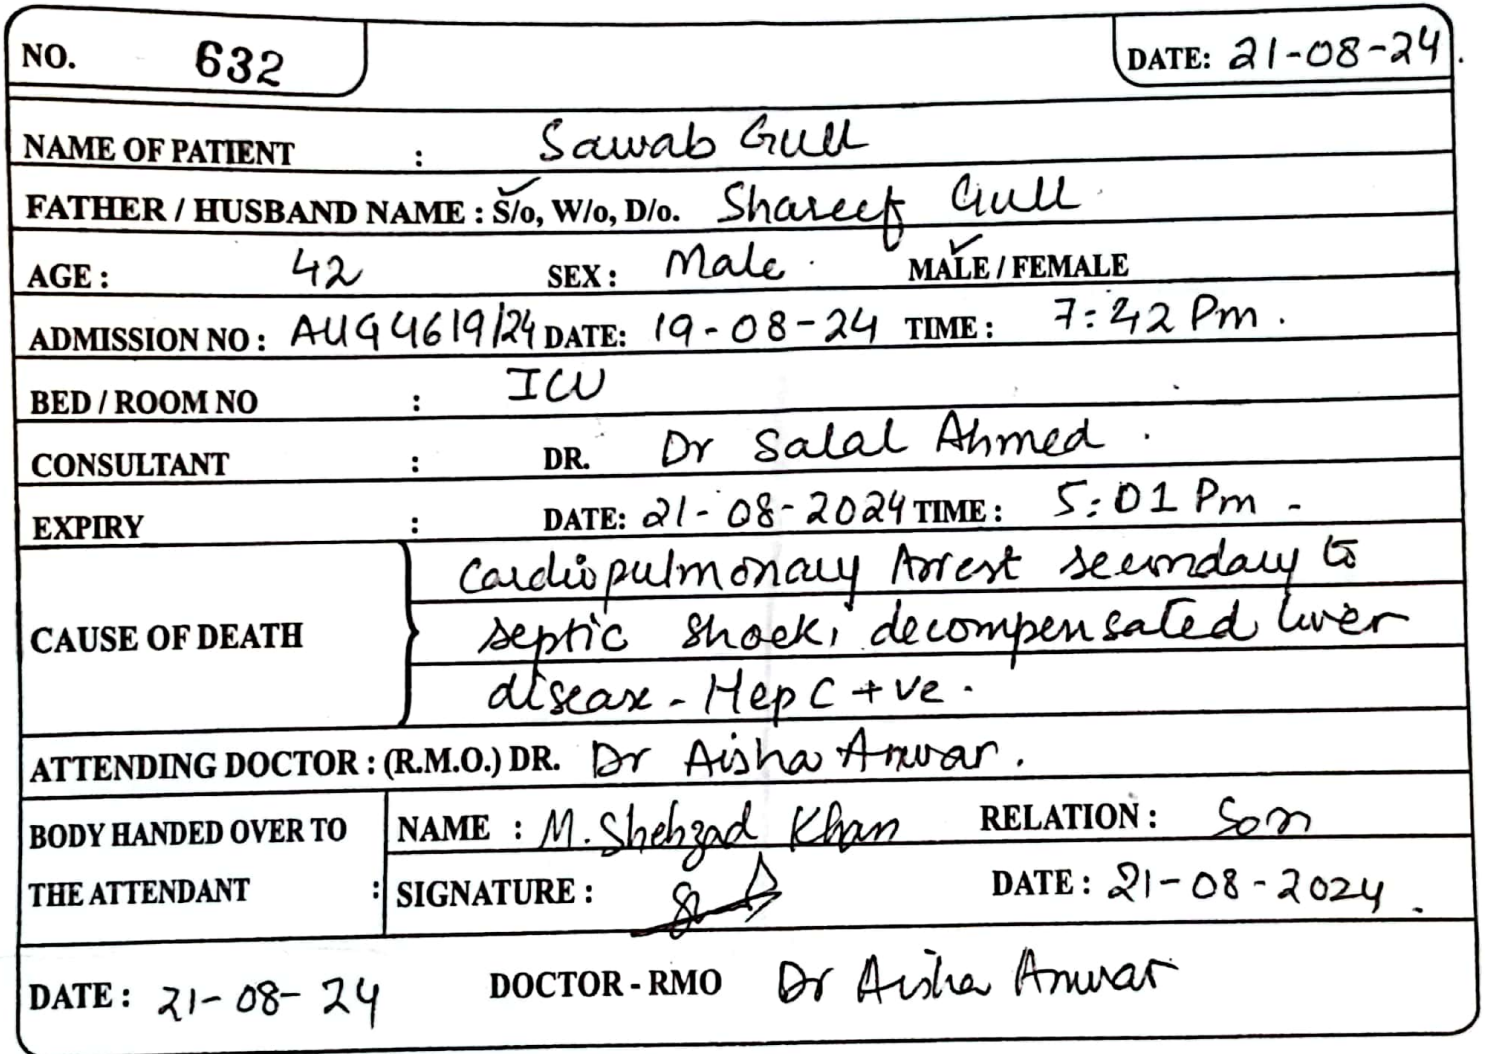 NO. 632 DATE: 21-08-24.
NAME OF PATIENT : Sawab Gull
FATHER / HUSBAND NAME : S/o, W/o, D/o. Shareef Gull
AGE : 42 SEX : Male. MALE / FEMALE
ADMISSION NO : AUG4619/24 DATE: 19-08-24 TIME : 7:42 Pm.
BED / ROOM NO : ICU
CONSULTANT : DR. Dr Salal Ahmed.
EXPIRY : DATE: 21-08-2024 TIME : 5:01 Pm -
CAUSE OF DEATH
Cardiopulmonary Arrest secondary to
septic shock, decompensated liver
disease - Hep C +ve.
ATTENDING DOCTOR : (R.M.O.) DR. Dr Aisha Anwar.
BODY HANDED OVER TO THE ATTENDANT :
NAME : M. Shehzad Khan RELATION : Son
SIGNATURE : DATE : 21-08-2024.
DATE : 21-08-24 DOCTOR - RMO Dr Aisha Anwar